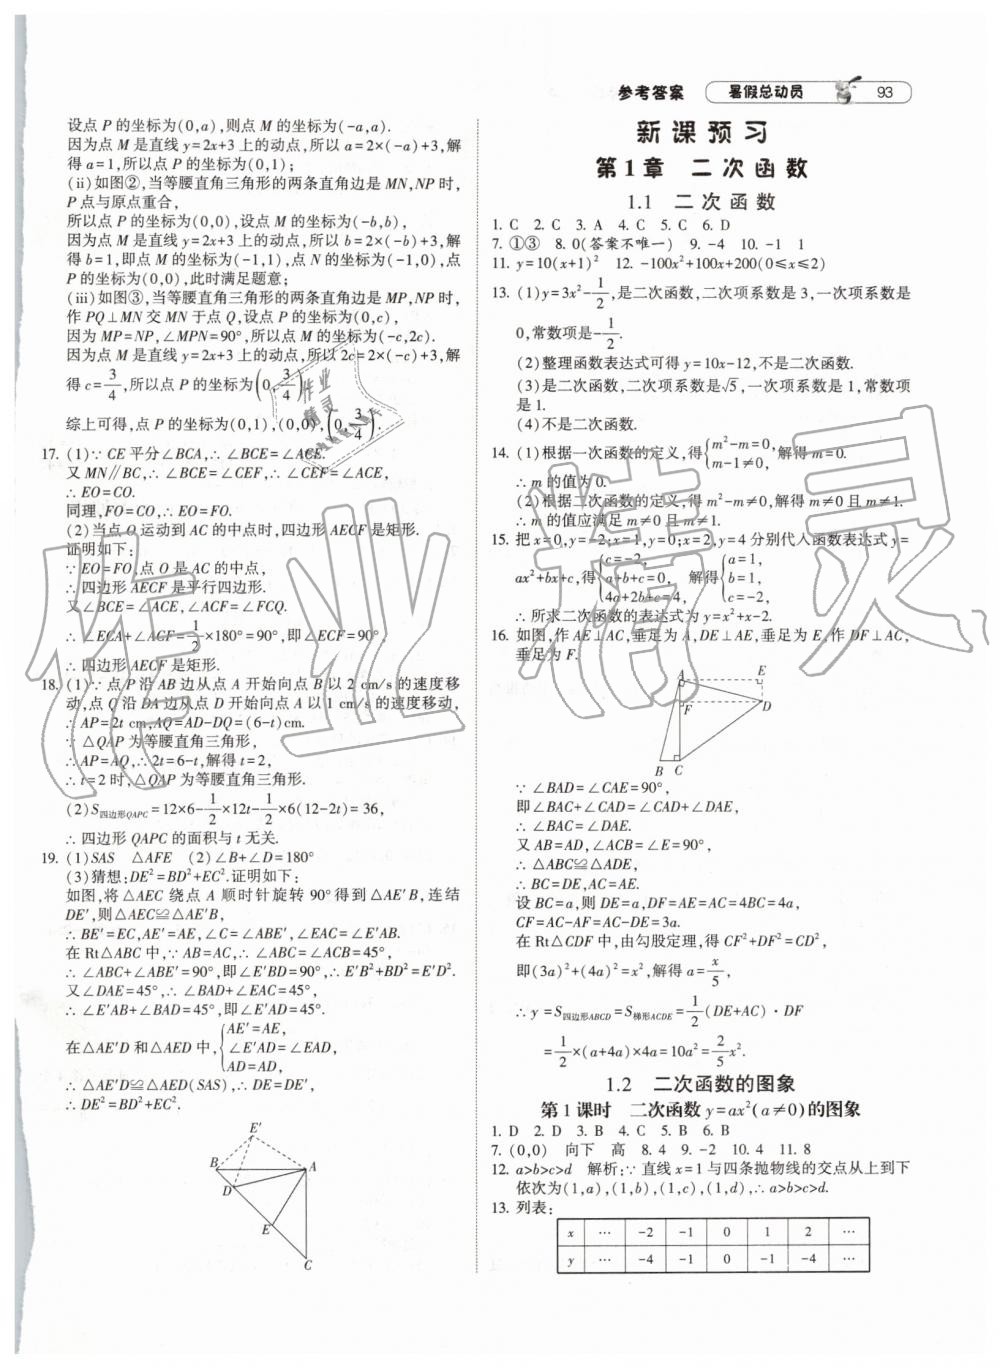 参考答案 暑假总动员 93
设点 P 的坐标为(0,a),则点 M 的坐标为(-a,a).
因为点 M 是直线 y=2x+3 上的动点,所以 a=2×(-a)+3,解
得 a=1,所以点 P 的坐标为(0,1);
(ii)如图②,当等腰直角三角形的两条直角边是 MN,NP 时,
P 点与原点重合,
所以点 P 的坐标为(0,0),设点 M 的坐标为(-b,b),
因为点 M 是直线 y=2x+3 上的动点,所以 b=2×(-b)+3,解
得 b=1,即点 M 的坐标为(-1,1),点 N 的坐标为(-1,0),点
P 的坐标为(0,0),此时满足题意;
(iii)如图③,当等腰直角三角形的两条直角边是 MP,NP 时,
作 PQ⊥MN 交 MN 于点 Q,设点 P 的坐标为(0,c),
因为 MP=NP,∠MPN=90°,所以点 M 的坐标为(-c,2c).
因为点 M 是直线 y=2x+3 上的动点,所以 2c=2×(-c)+3,解
得 c=3/4,所以点 P 的坐标为(0,3/4).
综上可得,点 P 的坐标为(0,1),(0,0),(0,3/4).
17. (1)∵ CE 平分∠BCA,∴ ∠BCE=∠ACE.
又 MN∥BC,∴ ∠BCE=∠CEF,∴ ∠CEF=∠ACE,
∴ EO=CO.
同理,FO=CO,∴ EO=FO.
(2)当点 O 运动到 AC 的中点时,四边形 AECF 是矩形.
证明如下:
∵ EO=FO,点 O 是 AC 的中点,
∴ 四边形 AECF 是平行四边形.
又∠BCE=∠ACE,∠ACF=∠FCQ.
∴ ∠ECA+∠ACF=1/2×180°=90°,即∠ECF=90°.
∴ 四边形 AECF 是矩形.
18. (1)∵ 点 P 沿 AB 边从点 A 开始向点 B 以 2 cm/s 的速度移
动,点 Q 沿 DA 边从点 D 开始向点 A 以 1 cm/s 的速度移动,
∴ AP=2t cm,AQ=AD-DQ=(6-t)cm.
∵ △QAP 为等腰直角三角形,
∴ AP=AQ,∴ 2t=6-t,解得 t=2,
∴ t=2 时,△QAP 为等腰直角三角形.
(2)S四边形QAPC=12×6-1/2×12t-1/2×6(12-2t)=36,
∴ 四边形 QAPC 的面积与 t 无关.
19. (1)SAS △AFE (2)∠B+∠D=180°
(3)猜想:DE²=BD²+EC².证明如下:
如图,将△AEC 绕点 A 顺时针旋转 90°得到△AE'B,连结
DE',则△AEC≌△AE'B,
∴ BE'=EC,AE'=AE,∠C=∠ABE',∠EAC=∠E'AB.
在 Rt△ABC 中,∵ AB=AC,∴ ∠ABC=∠ACB=45°,
∴ ∠ABC+∠ABE'=90°,即∠E'BD=90°,∴ E'B²+BD²=E'D².
又∠DAE=45°,∴ ∠BAD+∠EAC=45°,
∴ ∠E'AB+∠BAD=45°,即∠E'AD=45°.
在△AE'D 和△AED 中,{AE'=AE,
∠E'AD=∠EAD,
AD=AD,
∴ △AE'D≌△AED(SAS),∴ DE=DE',
∴ DE²=BD²+EC².
E'
B A
D
E
C
新课预习
第1章 二次函数
1.1 二次函数
1. C 2. C 3. A 4. C 5. C 6. D
7. ①③ 8. 0(答案不唯一) 9. -4 10. -1 1
11. y=10(x+1)² 12. -100x²+100x+200(0≤x≤2)
13. (1)y=3x²-1/2,是二次函数,二次项系数是 3,一次项系数是
0,常数项是-1/2.
(2)整理函数表达式可得 y=10x-12,不是二次函数.
(3)是二次函数,二次项系数是√5,一次项系数是 1,常数项
是 1.
(4)不是二次函数.
14. (1)根据一次函数的定义,得{m²-m=0, m-1≠0, 解得 m=0.
∴ m 的值为 0.
(2)根据二次函数的定义,得 m²-m≠0,解得 m≠0 且 m≠1.
∴ m 的值应满足 m≠0 且 m≠1.
15. 把 x=0,y=-2;x=1,y=0;x=2,y=4 分别代入函数表达式 y=
ax²+bx+c,得{c=-2, a+b+c=0, 4a+2b+c=4, 解得{a=1, b=1, c=-2,
∴ 所求二次函数的表达式为 y=x²+x-2.
16. 如图,作 AE⊥AC,垂足为 A,DE⊥AE,垂足为 E,作 DF⊥AC,
垂足为 F.
A E
F D
B C
∵ ∠BAD=∠CAE=90°,
即∠BAC+∠CAD=∠CAD+∠DAE,
∴ ∠BAC=∠DAE.
又 AB=AD,∠ACB=∠E=90°,
∴ △ABC≌△ADE,
∴ BC=DE,AC=AE.
设 BC=a,则 DE=a,DF=AE=AC=4BC=4a,
CF=AC-AF=AC-DE=3a.
在 Rt△CDF 中,由勾股定理,得 CF²+DF²=CD²,
即(3a)²+(4a)²=x²,解得 a=x/5,
∴ y=S四边形ABCD=S梯形ACDE=1/2(DE+AC)·DF
=1/2×(a+4a)×4a=10a²=2/5x².
1.2 二次函数的图象
第1课时 二次函数 y=ax²(a≠0)的图象
1. D 2. D 3. B 4. C 5. B 6. B
7. (0,0) 向下 高 8. 4 9. -2 10. 4 11. 8
12. a>b>c>d 解析:∵ 直线 x=1 与四条抛物线的交点从上到下
依次为(1,a),(1,b),(1,c),(1,d),∴ a>b>c>d.
13. 列表:
x … -2 -1 0 1 2 …
y … -4 -1 0 -1 -4 …
作业精灵
作业精灵